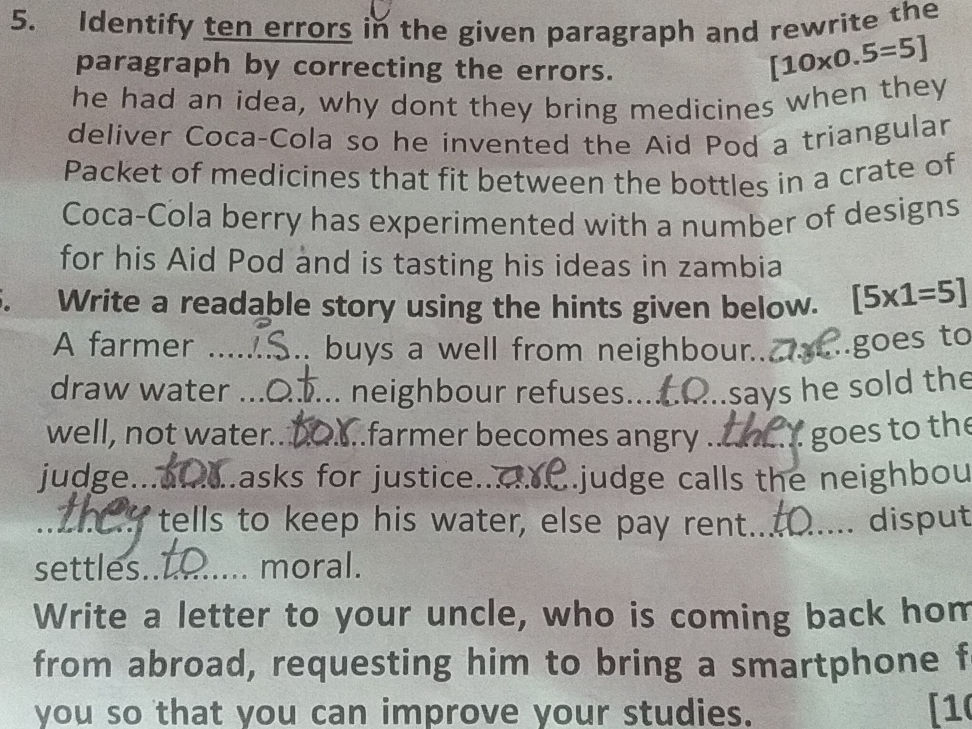 5. Identify ten errors in the given paragraph and rewrite the
paragraph by correcting the errors. [10x0.5=5]
he had an idea, why dont they bring medicines when they
deliver Coca-Cola so he invented the Aid Pod a triangular
Packet of medicines that fit between the bottles in a crate of
Coca-Cola berry has experimented with a number of designs
for his Aid Pod and is tasting his ideas in zambia
. Write a readable story using the hints given below. [5x1=5]
A farmer ......is.. buys a well from neighbour..are..goes to
draw water ...ot... neighbour refuses....to...says he sold the
well, not water..for..farmer becomes angry ..they. goes to the
judge...for..asks for justice...are.judge calls the neighbou
..they tells to keep his water, else pay rent...to..... disput
settles..to...... moral.
Write a letter to your uncle, who is coming back hom
from abroad, requesting him to bring a smartphone f
you so that you can improve your studies. [10